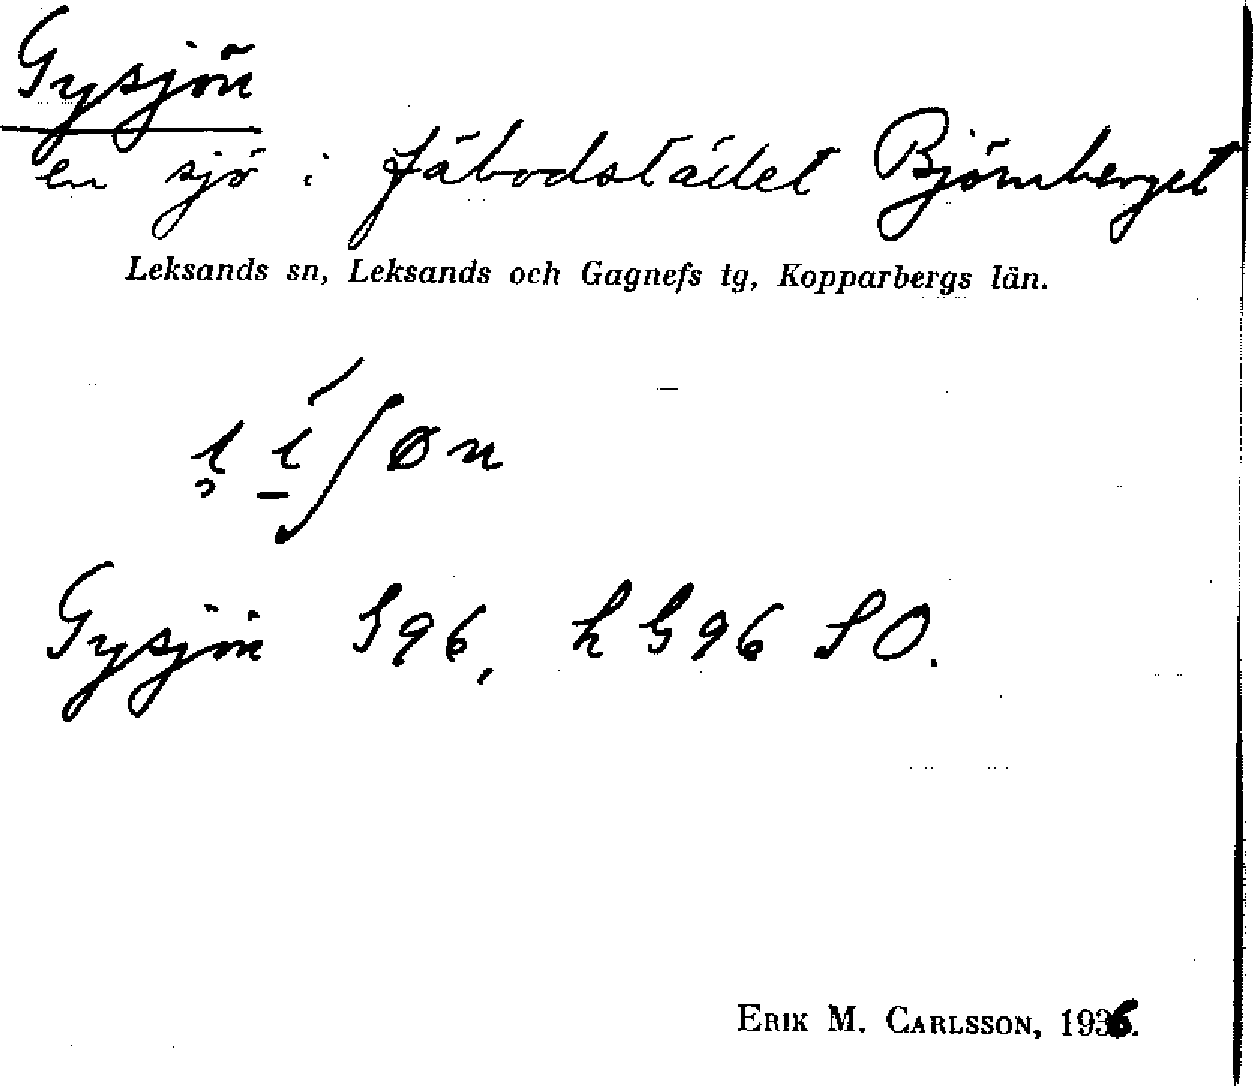 Gysjön
en sjö i fäbodstället Björnberget
Leksands sn, Leksands och Gagnefs tg, Kopparbergs län.
Gysjön S96, h G96 SO.
ERIK M. CARLSSON, 1936.